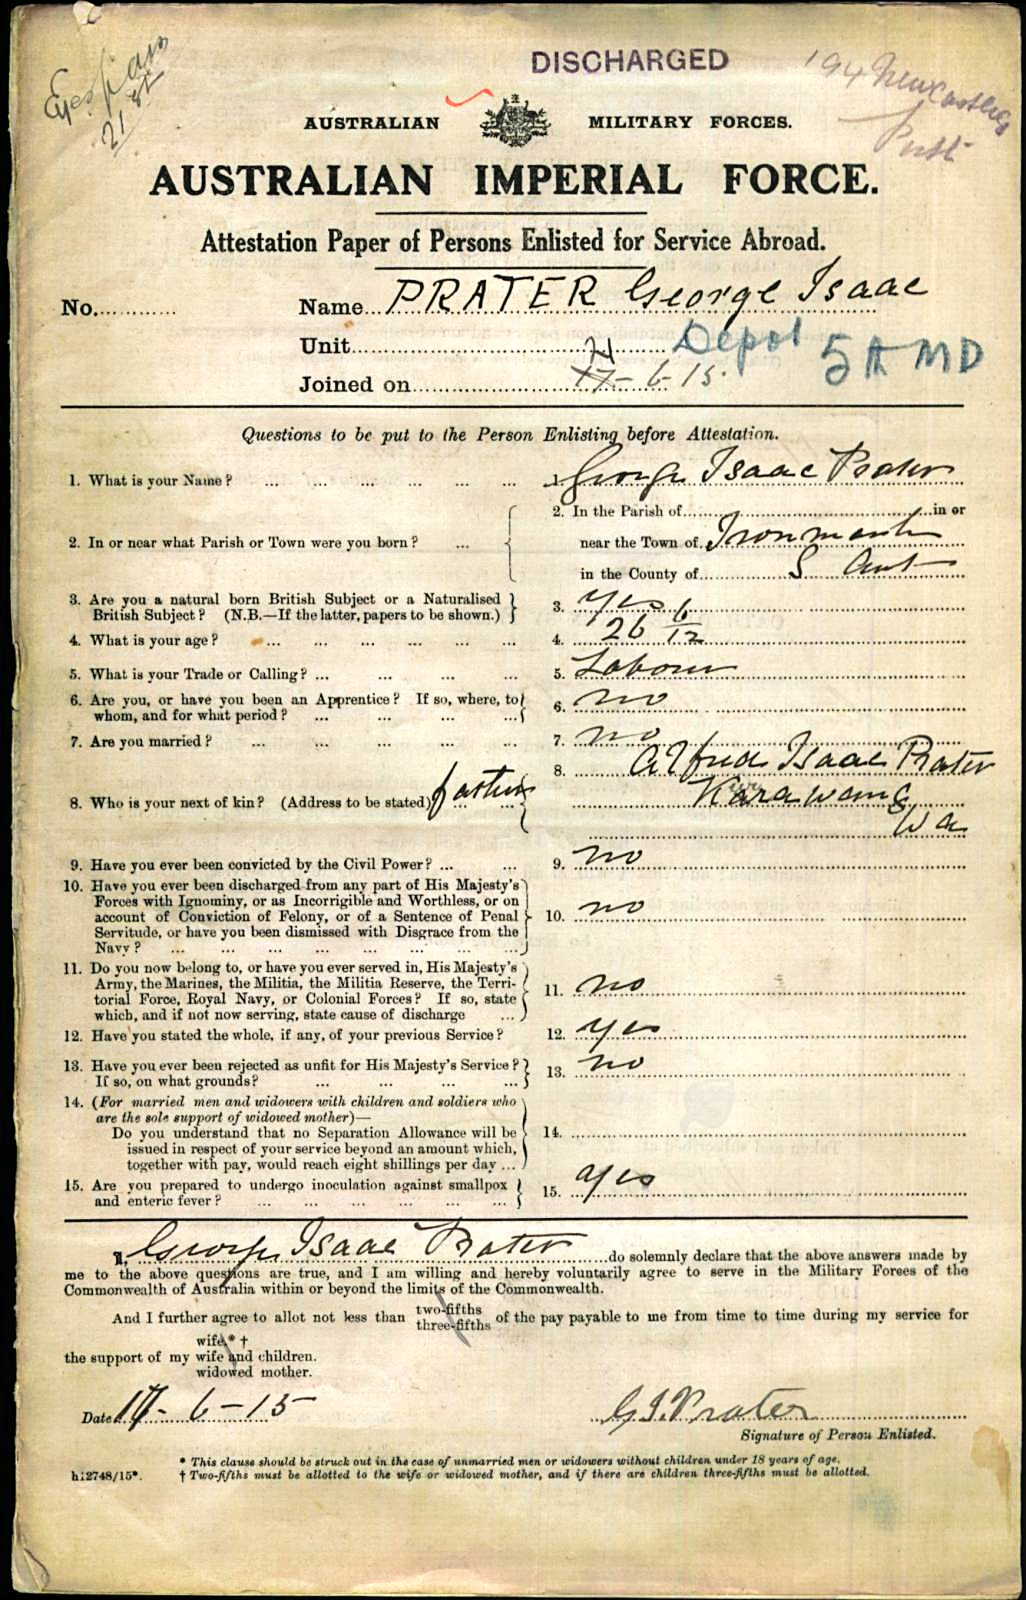 Eyes
21
DISCHARGED
194 Newcastle St
Perth
AUSTRALIAN MILITARY FORCES.
AUSTRALIAN IMPERIAL FORCE.
Attestation Paper of Persons Enlisted for Service Abroad.
No. Name PRATER George Isaac
Unit Depot 5 A M D
Joined on 17-6-15.
Questions to be put to the Person Enlisting before Attestation.
1. What is your Name? ... ... ... ... ... ... 1. George Isaac Prater
2. In the Parish of in or
2. In or near what Parish or Town were you born? ... near the Town of
in the County of S Aust
3. Are you a natural born British Subject or a Naturalised
British Subject? (N.B.—If the latter, papers to be shown.) 3. Yes
4. What is your age? ... ... ... ... ... 4. 26 6/12
5. What is your Trade or Calling? ... ... ... ... 5. Labourer
6. Are you, or have you been an Apprentice? If so, where, to
whom, and for what period? ... ... ... ... 6. no
7. Are you married? ... ... ... ... ... 7. no
8. Alfred Isaac Prater
8. Who is your next of kin? (Address to be stated) father ... Karawang
Wa
9. Have you ever been convicted by the Civil Power? ... ... 9. no
10. Have you ever been discharged from any part of His Majesty's
Forces with Ignominy, or as Incorrigible and Worthless, or on
account of Conviction of Felony, or of a Sentence of Penal 10. no
Servitude, or have you been dismissed with Disgrace from the
Navy? ... ... ... ... ... ... ... ...
11. Do you now belong to, or have you ever served in, His Majesty's
Army, the Marines, the Militia, the Militia Reserve, the Terri-
torial Force, Royal Navy, or Colonial Forces? If so, state 11. no
which, and if not now serving, state cause of discharge ...
12. Have you stated the whole, if any, of your previous Service? 12. yes
13. Have you ever been rejected as unfit for His Majesty's Service? 13. no
If so, on what grounds? ... ... ... ...
14. (For married men and widowers with children and soldiers who
are the sole support of widowed mother)—
Do you understand that no Separation Allowance will be 14.
issued in respect of your service beyond an amount which,
together with pay, would reach eight shillings per day ...
15. Are you prepared to undergo inoculation against smallpox 15. yes
and enteric fever? ... ... ... ... ... ...
I, George Isaac Prater do solemnly declare that the above answers made by
me to the above questions are true, and I am willing and hereby voluntarily agree to serve in the Military Forces of the
Commonwealth of Australia within or beyond the limits of the Commonwealth.
And I further agree to allot not less than two-fifths three-fifths of the pay payable to me from time to time during my service for
wife* †
the support of my wife and children.
widowed mother.
Date 17-6-15 G I Prater
Signature of Person Enlisted.
* This clause should be struck out in the case of unmarried men or widowers without children under 18 years of age.
h12748/15*. † Two-fifths must be allotted to the wife or widowed mother, and if there are children three-fifths must be allotted.